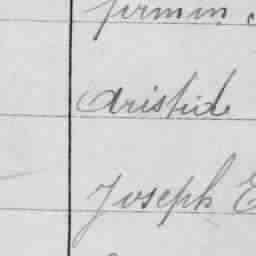 firmin
Aristid
Joseph E